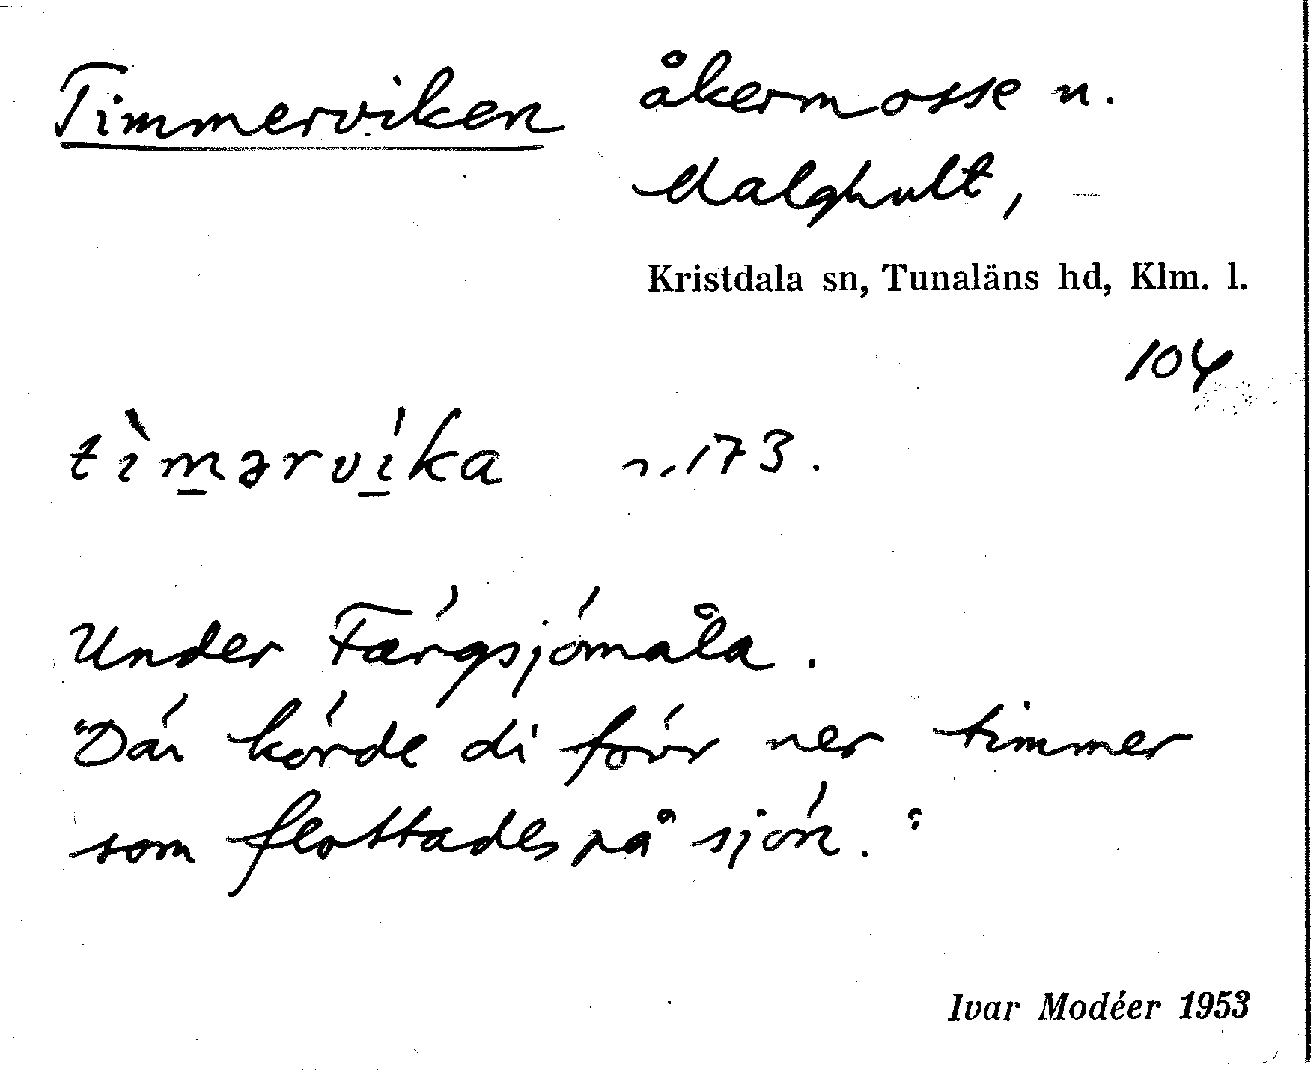 Timmerviken åkermosse n.
Malghult,
Kristdala sn, Tunaläns hd, Klm. l.
104
tìmərvíka n. 173.
Under Färgsjömåla.
"Där körde di förr ner timmer
som flottades på sjön."
Ivar Modéer 1953